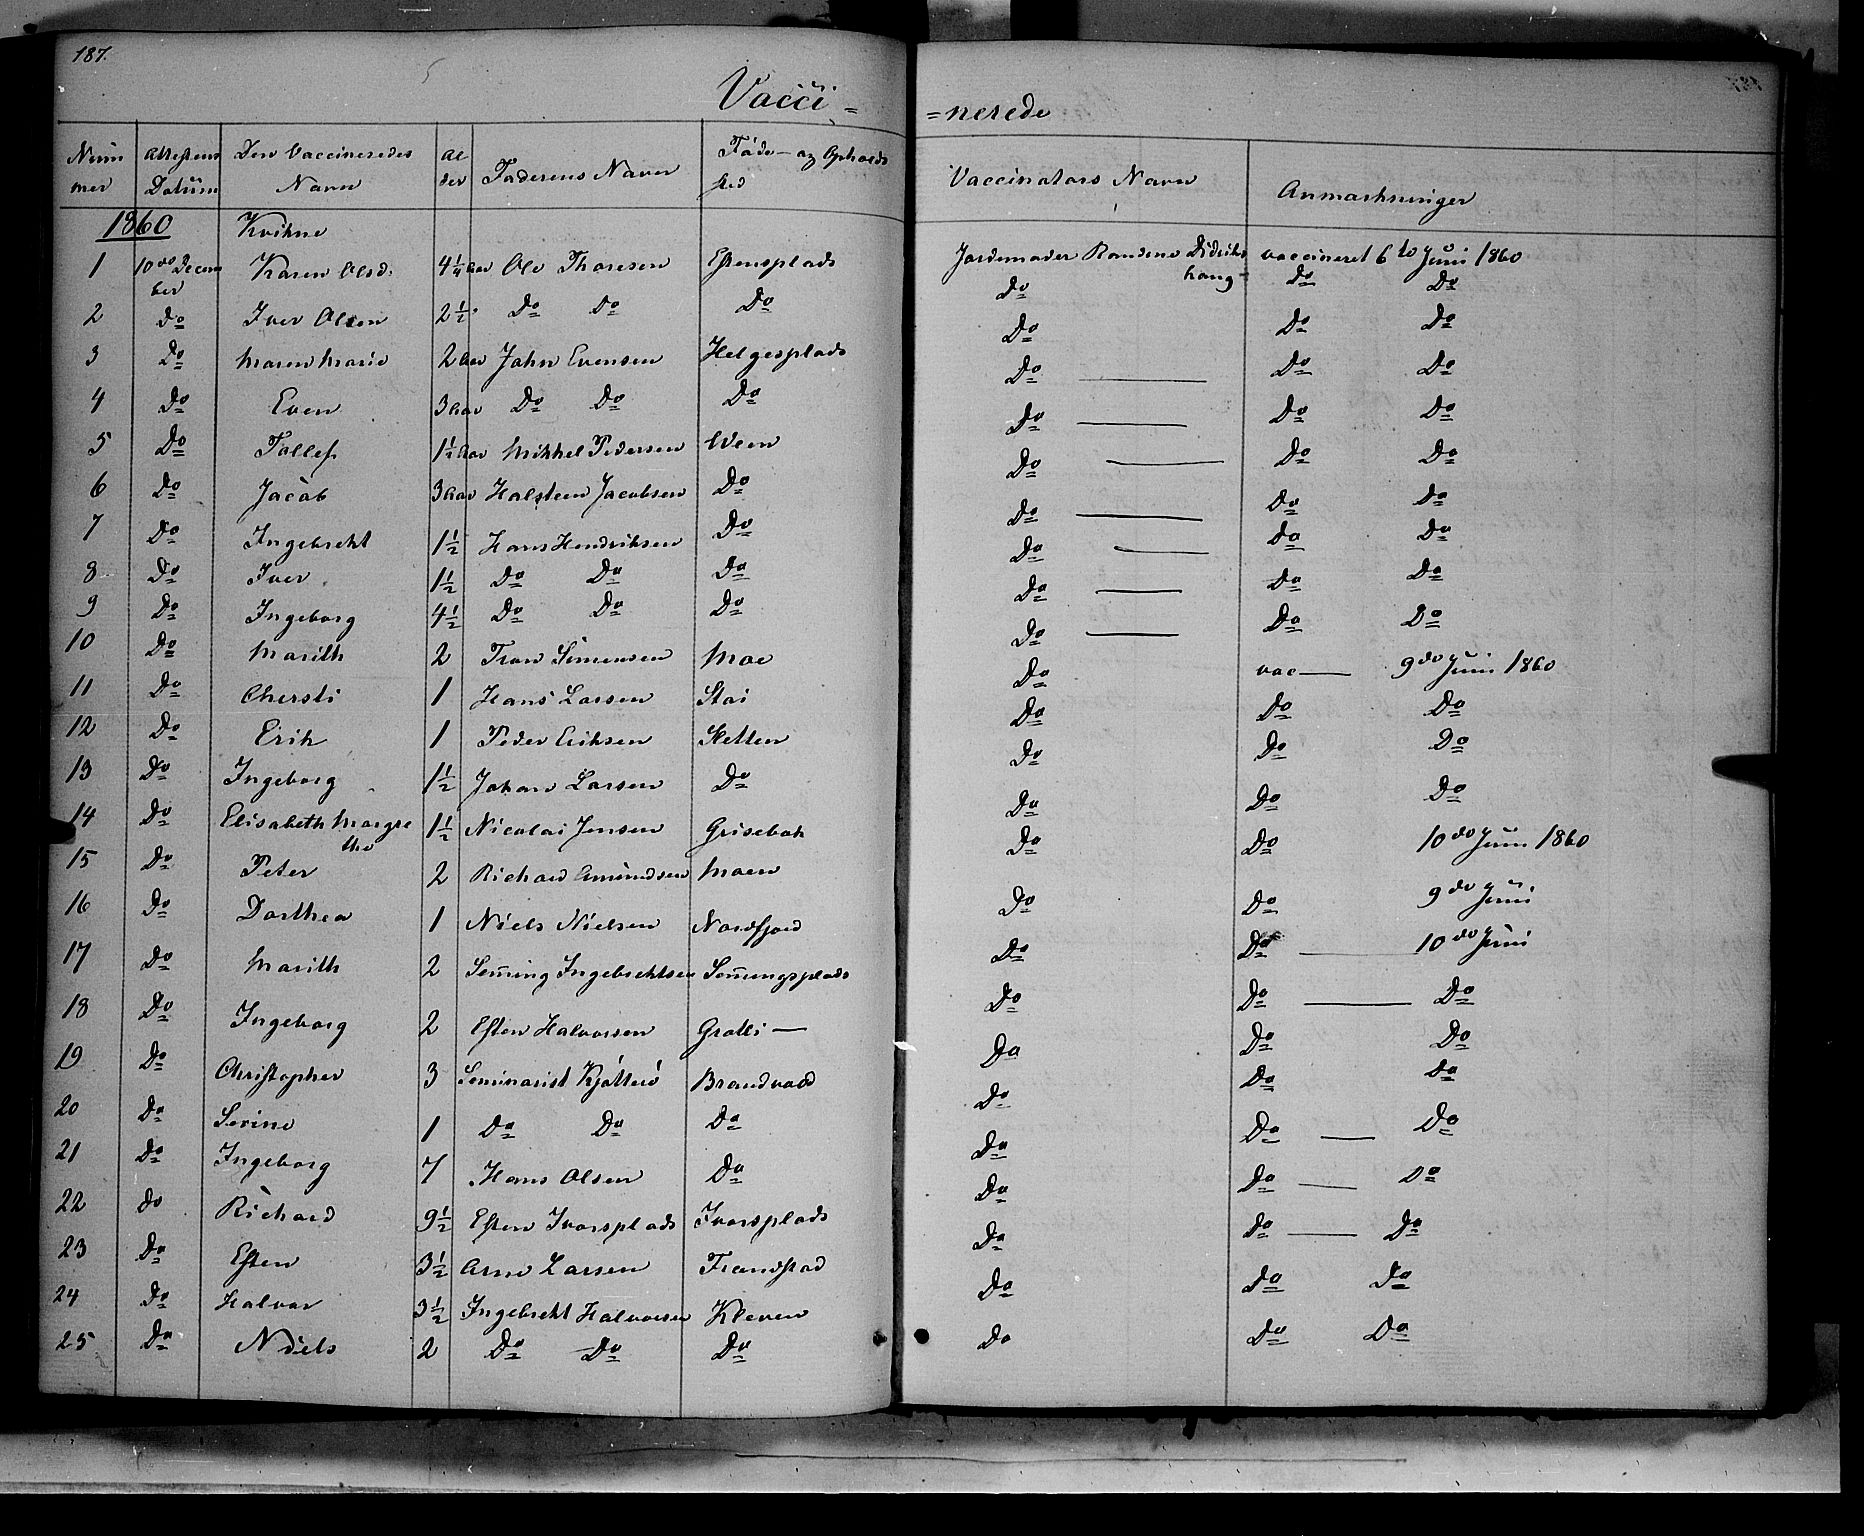 187.
Vacci= =nerede
Num mer | Attestens Datum | Den Vaccineredes Navn | Al der | Faderens Navn | Føde- og Opholds sted | Vaccinators Navn | Anmærkninger
1860 Kvikne
1 | 10de Decem ber | Karen Olsd: | 4 1/4 aar | Ole Thoresen | Estensplads | Jordemoder Randine Didriks haug | vaccineret 6te Juni 1860
2 | Do | Iver Olsen | 2 1/2 | Do Do | Do | Do | Do Do
3 | Do | Maren Marie | 2 aar | John Evensen | Helgesplads | Do | Do Do
4 | Do | Even | 3 aar | Do Do | Do | Do — | Do Do
5 | Do | Tollef | 1 1/2 aar | Mikkel Pedersen | Ween | Do — | Do Do
6 | Do | Jacob | 3 aar | Halsteen Jacobsen | Do | Do — | Do Do
7 | Do | Ingebrekt | 1 1/2 | Hans Hendriksen | Do | Do — | Do Do
8 | Do | Iver | 1 1/2 | Do Do | Do | Do — | Do Do
9 | Do | Ingeborg | 4 1/2 | Do Do | Do | Do — | Do Do
10 | Do | Marith | 2 | Tron Simensen | Moe | Do — | Do Do
11 | Do | Chersti | 1 | Hans Larsen | Stai | Do | vac — 9de Juni 1860
12 | Do | Erik | 1 | Peder Eriksen | Sletten | Do | Do Do
13 | Do | Ingeborg | 1 1/2 | Johan Larsen | Do | Do | Do Do
14 | Do | Elisabeth Margre the | 1 1/2 | Nicolai Jensen | Grisebak | Do | Do Do
15 | Do | Peter | 2 | Richard Amundsen | Moen | Do | Do 10de Juni 1860
16 | Do | Dorthea | 1 | Niels Nielsen | Nordfjord | Do | Do 9de Juni
17 | Do | Marith | 2 | Semming Ingebrektsen | Semmingsplads | Do | Do — 10de Juni
18 | Do | Ingeborg | 2 | Esten Halvorsen | Grotli — | Do | Do — Do
19 | Do | Christopher | 3 | Seminarist | Brandvold | Do | Do Do
20 | Do | Serine | 1 | Do Do | Do | Do | Do Do
21 | Do | Ingeborg | 7 | Hans Olsen | Do | Do | Do — Do
22 | do | Richard | 9 1/2 | Esten Ivarsplads | Ivarsplads | Do | Do — Do
23 | Do | Esten | 3 1/2 | Arne Larsen | Frandstad | Do | Do — Do
24 | Do | Halvor | 3 1/2 | Ingebrekt Halvorsen | Kleven | Do | Do Do
25 | Do | Niels | 2 | Do Do | Do | Do | Do Do